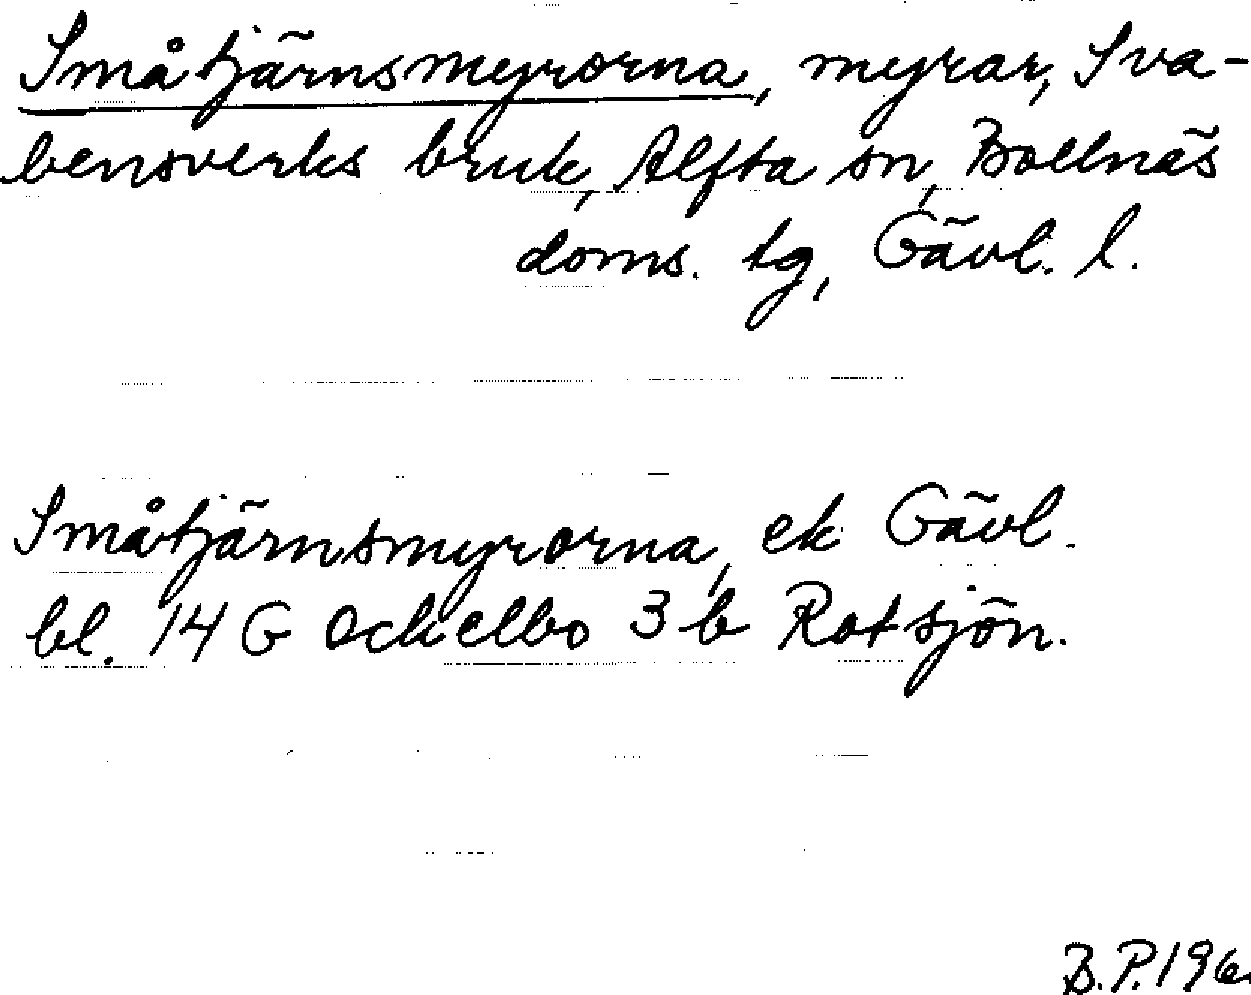 Småtjärnsmyrorna, myrar, Sva-
bensverks bruk, Alfta sn, Bollnäs
doms. tg, Gävl. l.
Småtjärnsmyrorna, ek Gävl.
bl. 14 G Ockelbo 3 b Rotsjön.
B.P. 196